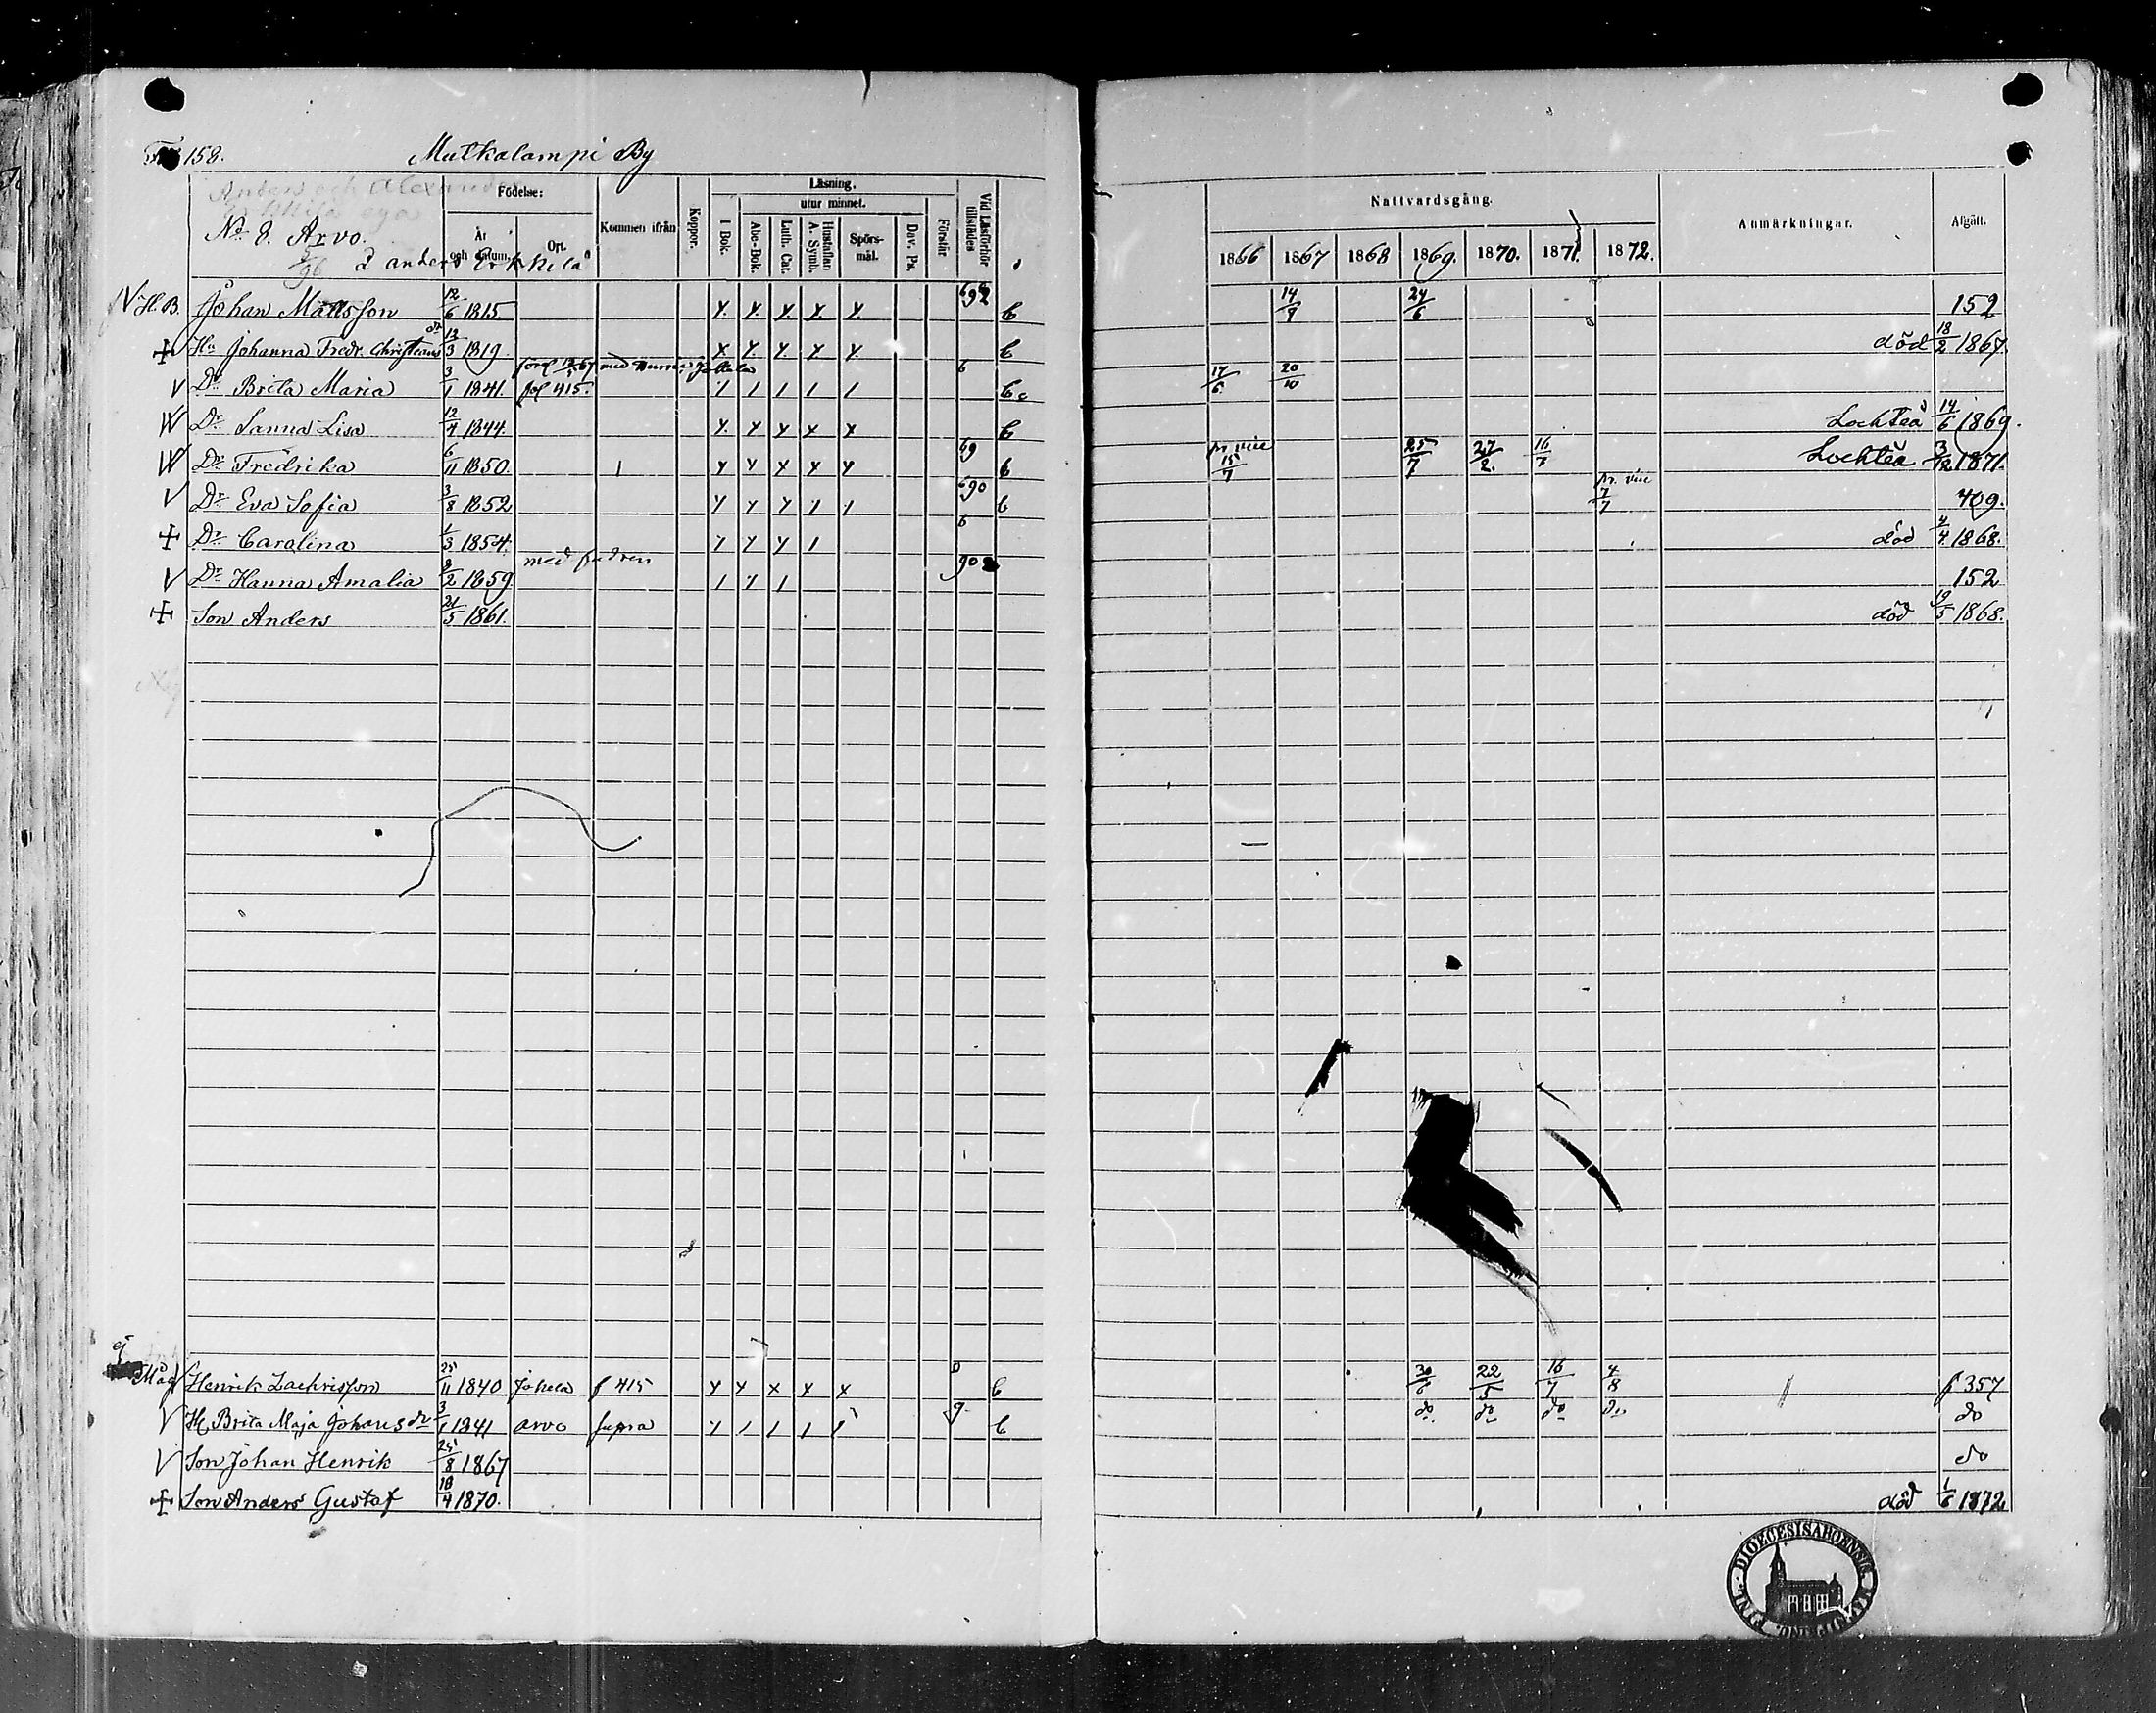 158. Mutkalampi By
Anders och Alexander
Erkkilä ega
No 8. Arvo.
2 anders Erkkilä
Födelse: År och datum. Ort. Kommen ifrån Koppor. Läsning. I Bok. utur minnet. Abc-Bok. Luth. Cat. Hustaflan A. Symb. Spörsmål. Dav. Ps. Förstår Vid Läsförhör tillstädes
Nattvardsgång. 1866 1867 1868 1869. 1870. 1871. 1872. Anmärkningar. Afgått.
H.B. Johan Mattsson 12/6 1815 x x x x x 692 b 14/9 24/6 152
Hu Johanna Fredr. Christians dr 12/3 1819. x x x x x b död 18/2 1867.
med Jokela
Dr Brita Maria 3/1 1841. fol 415. / / / / / 6 b 17/6 20/10
Dr Sanna Lisa 12/4 1844. x x x x x b Lochteå 14/6 1869.
Dr Fredrika 6/11 1850. x x x x x 69 b pr. vice 15/7 25/7 27/2. 16/7 Lochteå 3/12 1871.
Dr Eva Sofia 3/8 1852 x x x / / 690 b pr. vice 7/7 409.
Dr Carolina 1/3 1854. x x x / 6 död 4/4 1868.
med fadren
Dr Hanna Amalia 2/2 1859 / x / 90 152
Son Anders 21/5 1861. död 19/5 1868.
Måg Henrik Zachrisson 25/11 1840 Jokela f 415 x x x x x b 30/6 22/5 16/7 4/8 f 357
H. Brita Maja Johans dr 3/1 1841 arvo supra / / / / / 9 b do do do do do
Son Johan Henrik 25/8 1867 do
Son Anders Gustaf 18/4 1870. död 1/6 1872
DIOECESIS ABOENSIS